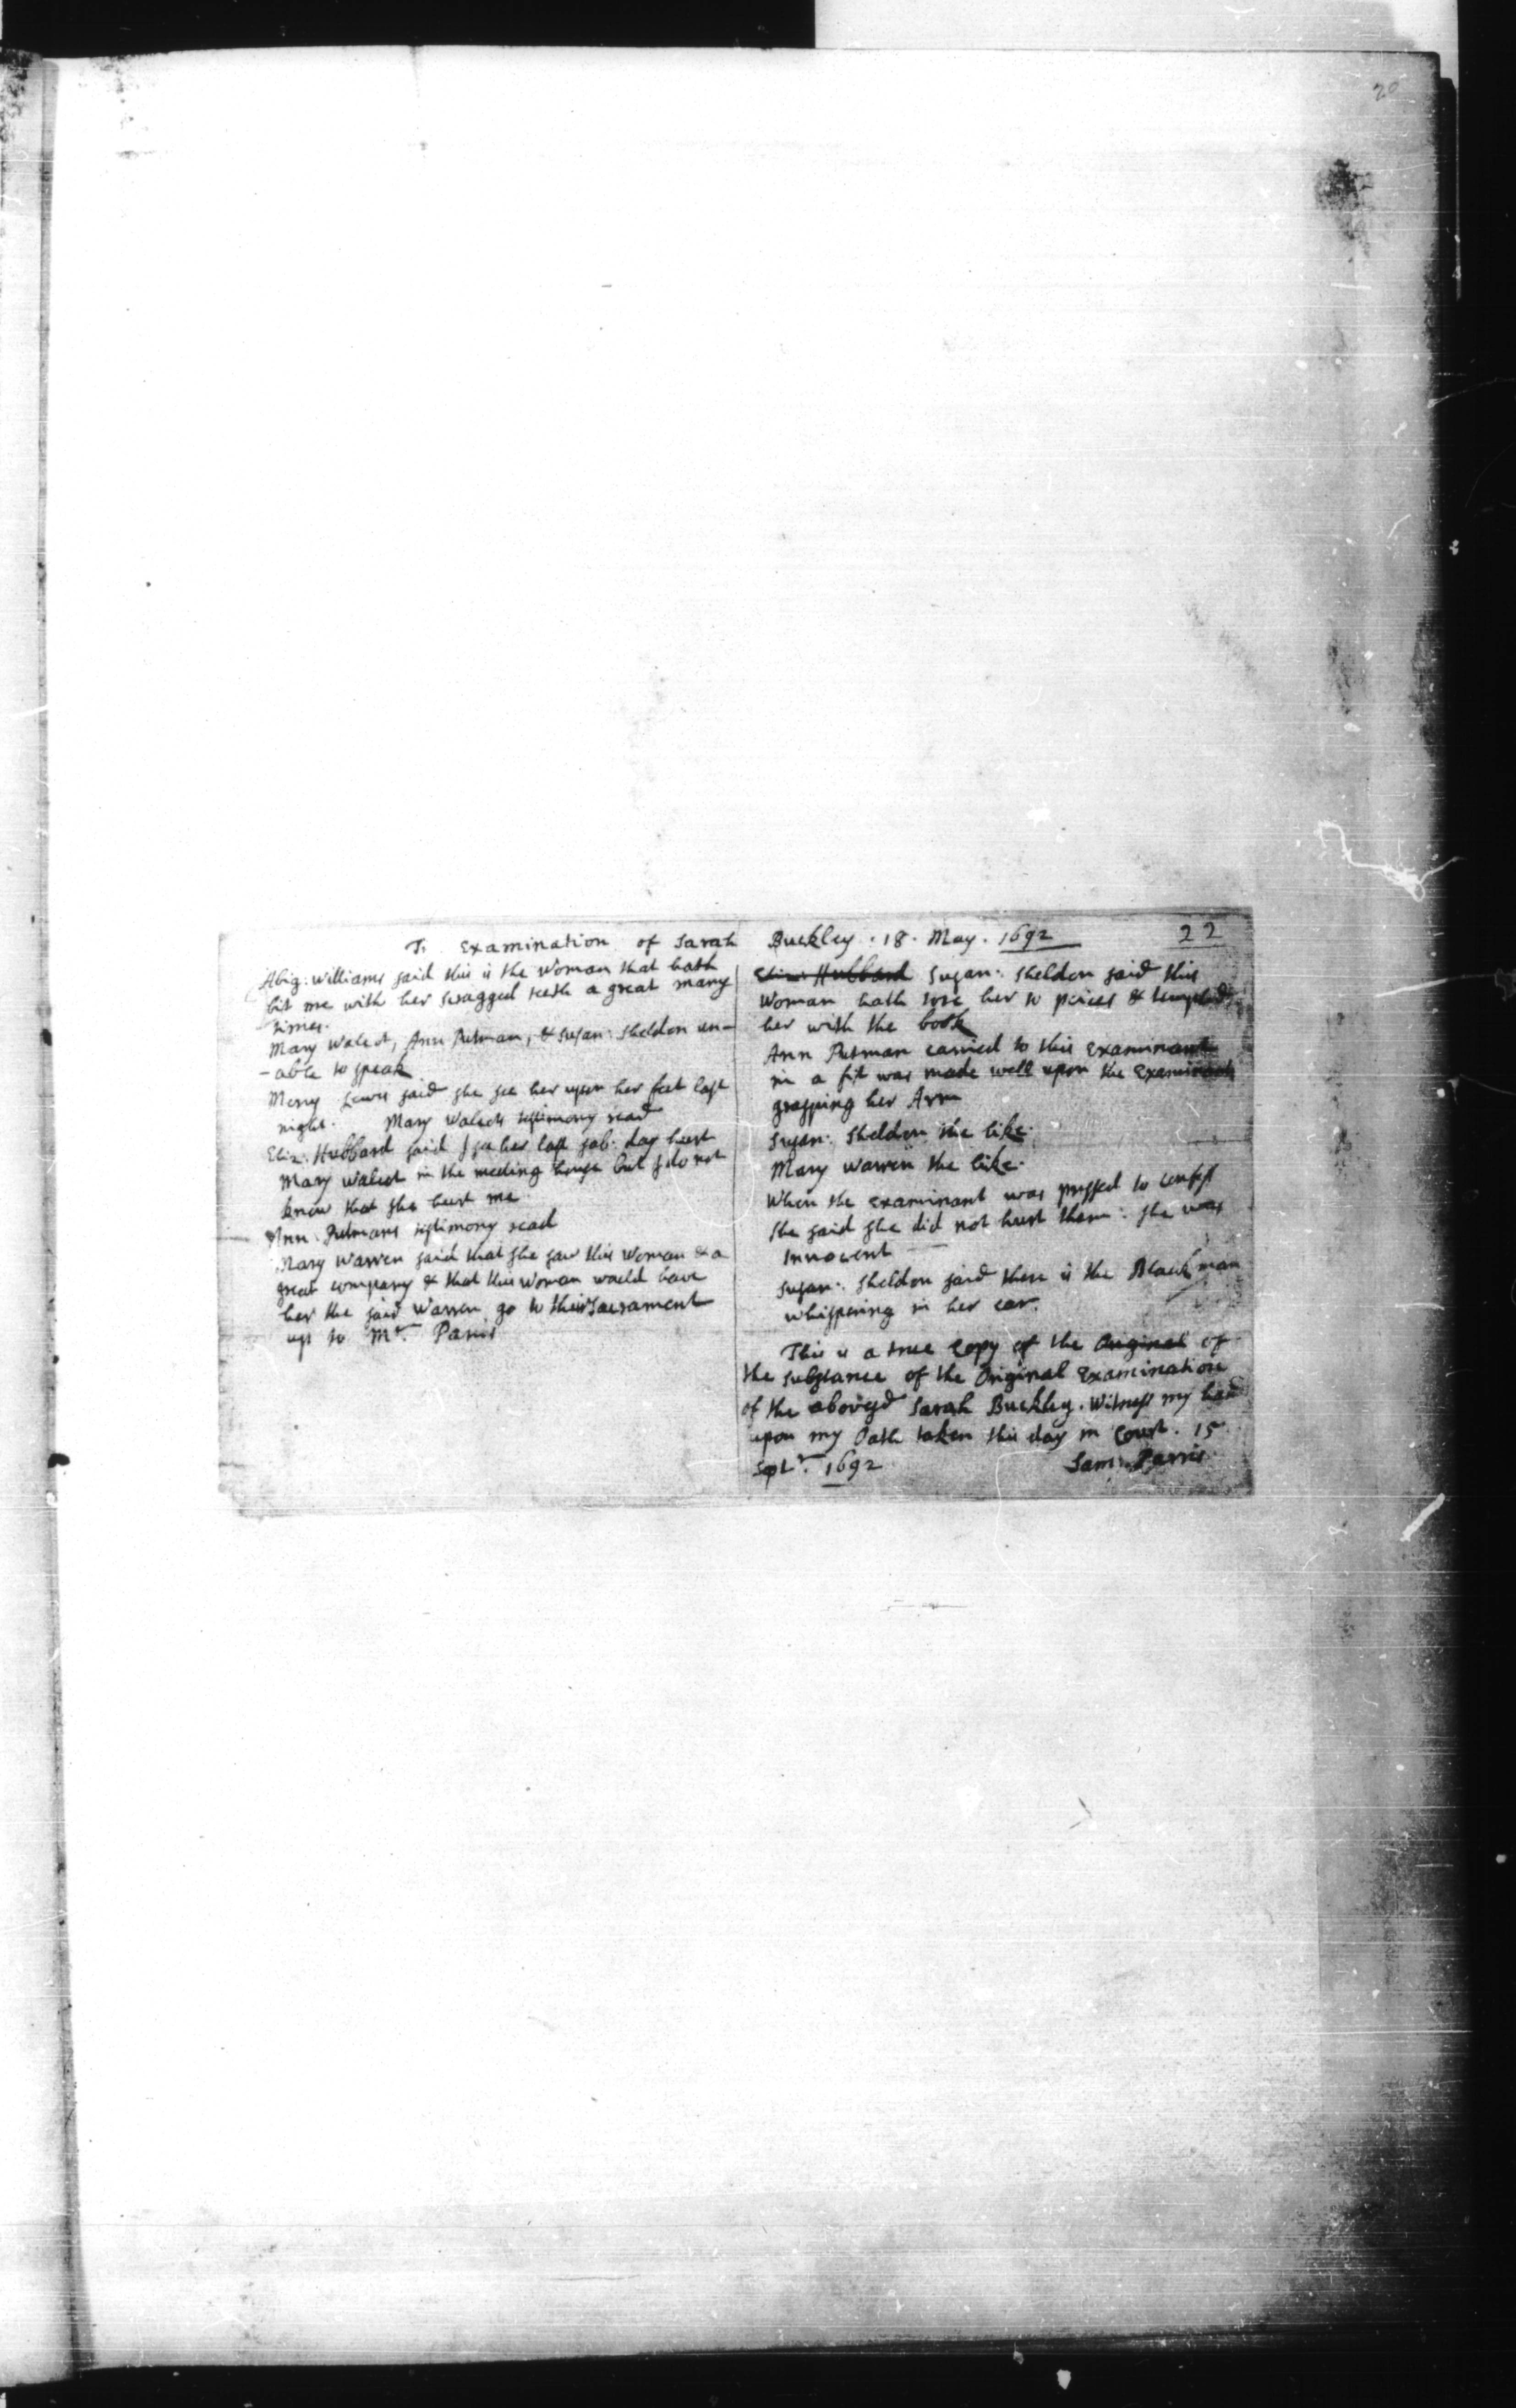 20
Tʰ Examination of Sarah Buckley . 18. May. 1692 22
Abig: Williams said this is the woman that hath
bit me with her scragged teeth a great many
times.
Mary Walcot, Ann Putman, & Susan: Sheldon un-
-able to speak
Mercy Lewis said she see her upon her feet last
night. Mary Walcots testimony read
Eliz: Hubbard said I see her last sab: day hurt
Mary Walcot in the meeting house but I do not
know that she hurt me
Ann Putmans testimony read
Mary Warren said that she saw this woman & a
great company & that this woman would have
her the said Warren go to their sacrament
up to Mr. Parris
Eliz: Hubbard Susan: Sheldon said this
Woman hath tore her to peices & tempted
her with the book
Ann Putman carried to this examinant
in a fit was made well upon the examinants
grasping her Arm
Susan: Sheldon the like.
Mary Warren the like.
When the examinant was pressed to confess
she said she did not hurt them: she was
Innocent
Susan: Sheldon said there is the Black man
whispering in her ear.
This is a true Copy of the Original of
the substance of the Original Examination
of the abovesd Sarah Buckley. Witness my hand
upon my Oath taken this day in Court. 15
Septr. 1692 Sam: Parris